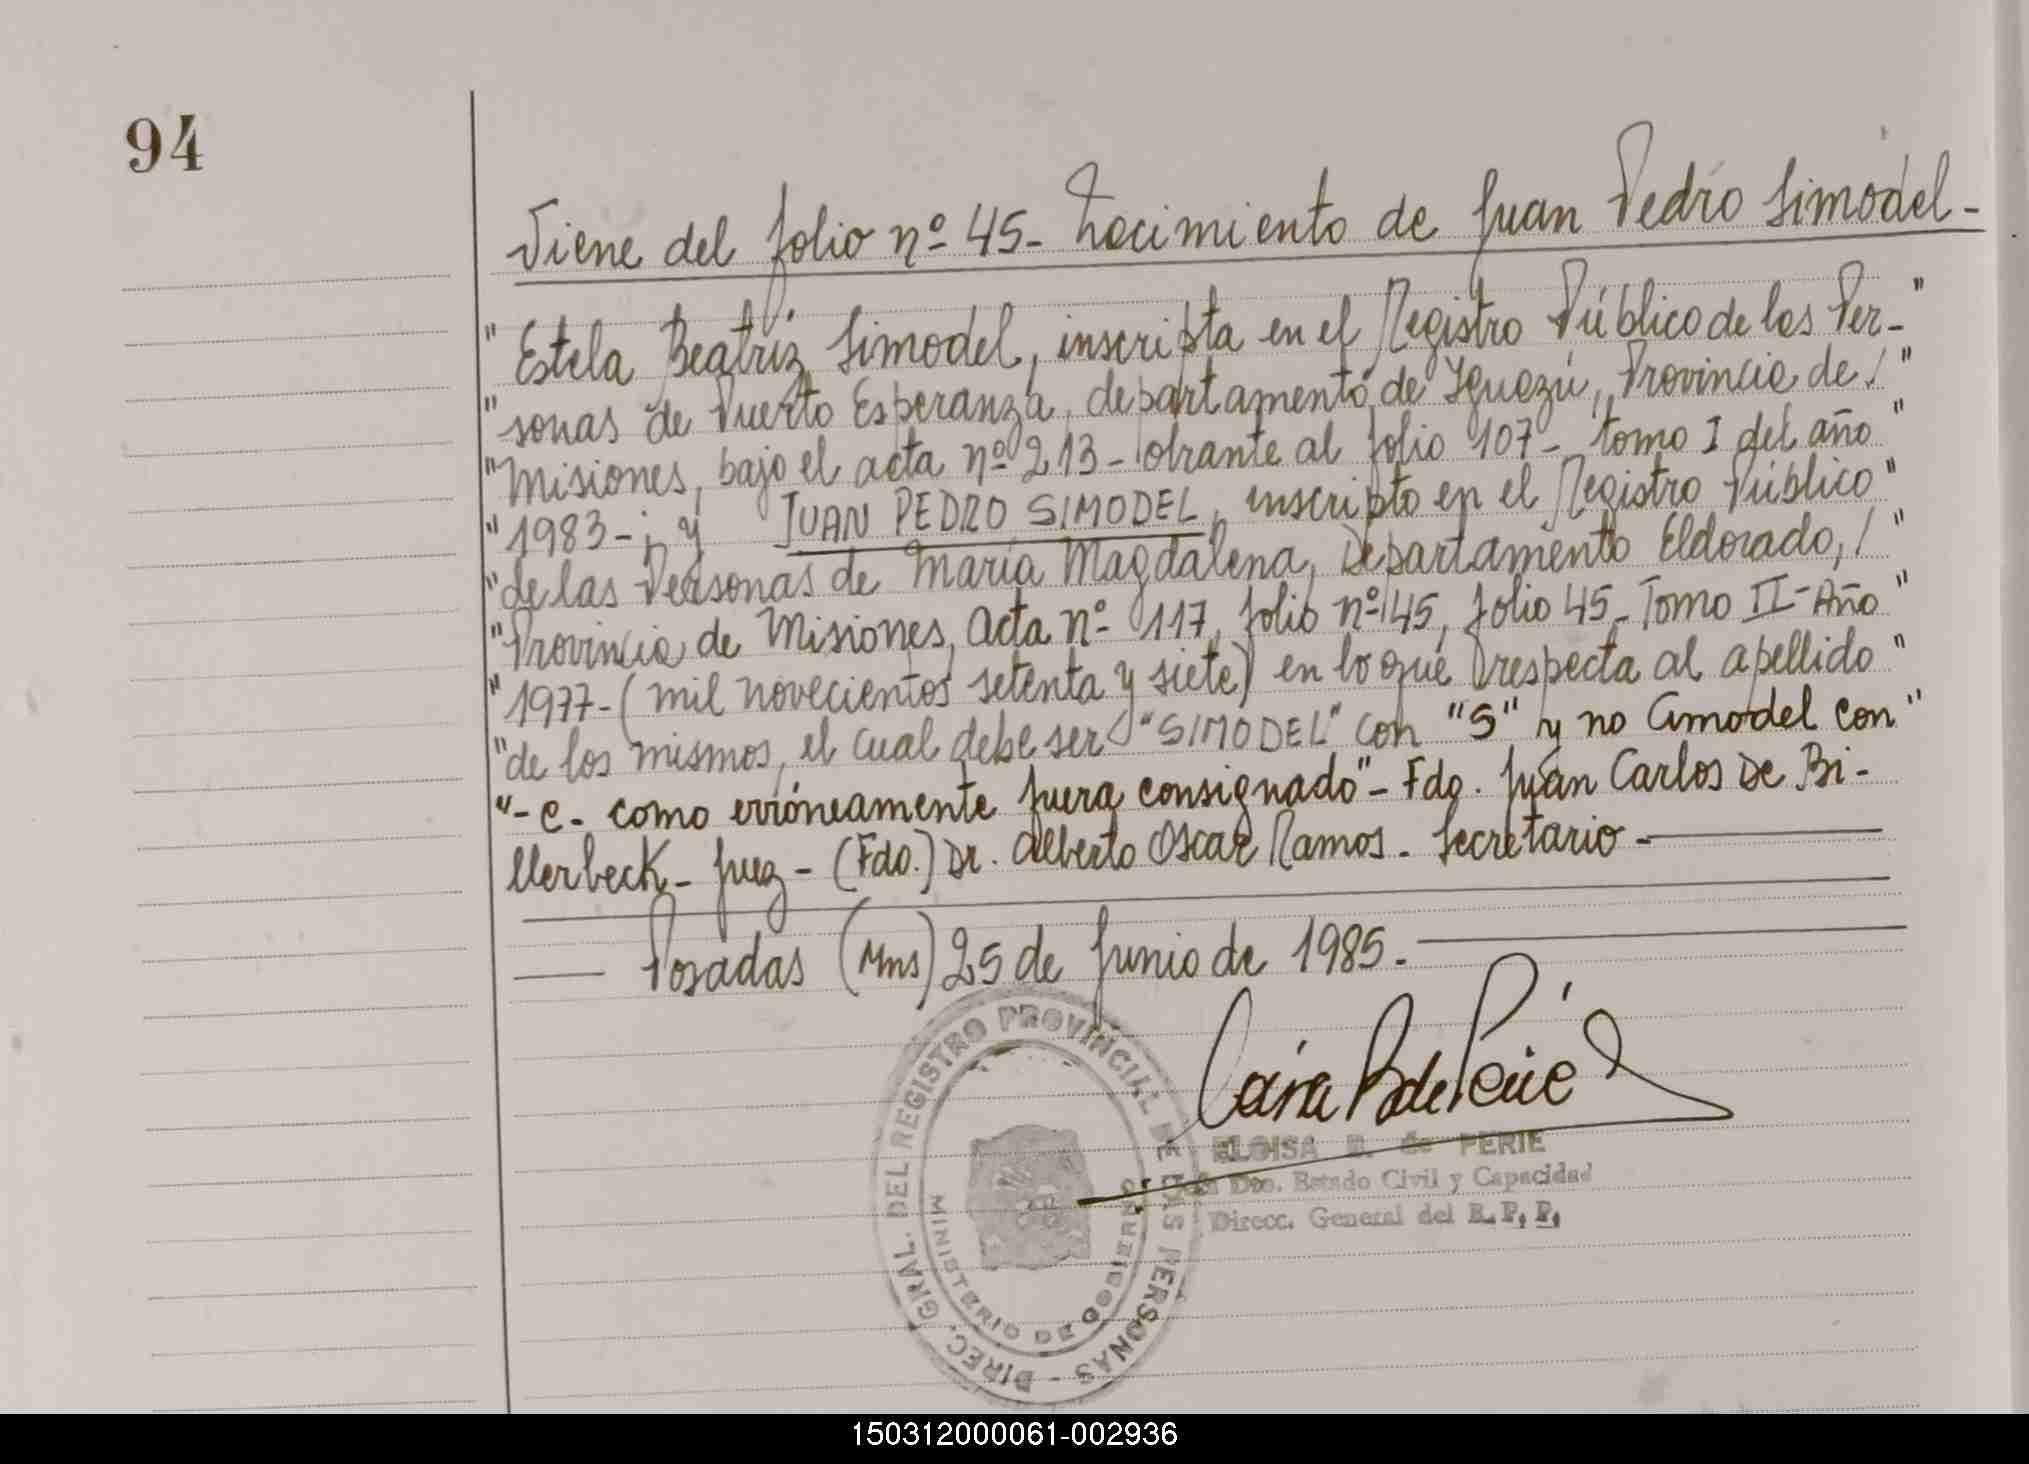 94
Viene del folio nº 45- Nacimiento de Juan Pedro Simodel-
"Estela Beatriz Simodel, inscripta en el Registro Público de las Per-"
"sonas de Puerto Esperanza, departamento de Iguazú, Provincia de / "
"Misiones, bajo el acta nº 213- obrante al folio 107- tomo I del año "
"1983-; y JUAN PEDRO SIMODEL, inscripto en el Registro Público "
"de las Personas de María Magdalena, Departamento Eldorado, / "
"Provincia de Misiones, Acta nº 117, folio nº 45, folio 45- Tomo II- Año "
"1977- (mil novecientos setenta y siete) en lo que respecta al apellido "
"de los mismos, el cual debe ser "SIMODEL" con "S" y no Cimodel con "
"- C- como erróneamente fuera consignado"- Fdo. Juan Carlos De Bi-
llerbeck- Juez- (Fdo.) Dr. Alberto Oscar Ramos- Secretario-
Posadas (Mns) 25 de Junio de 1985.-
ELOISA B. de PERIE
Dto. Estado Civil y Capacidad
Direcc. General del R. P. P.
DIREC. GRAL. DEL REGISTRO PROVINCIAL DE LAS PERSONAS -
MINISTERIO DE GOBIERNO
150312000061-002936